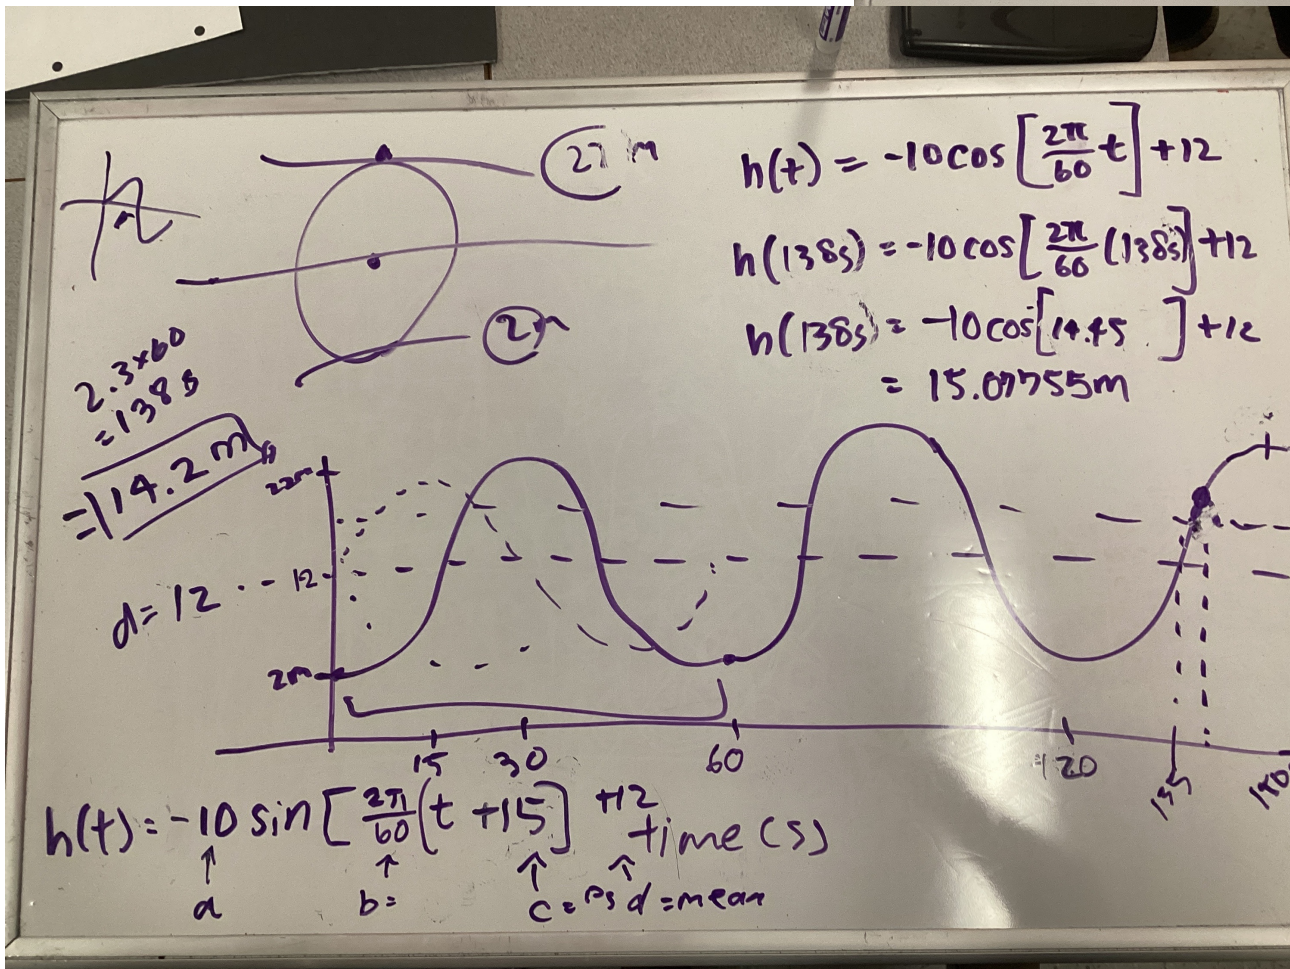 22 m
2m
h(t) = -10cos[2π/60 t] +12
h(138s) = -10cos[2π/60 (138s)] +12
h(138s) = -10cos[14.45 ] +12
= 15.07755m
2.3×60
=138s
=14.2 m
22m
d=12
12
2m
15 30 60 120 135
h(t) = -10 sin [2π/60 (t +15] +12
time (s)
a b= c= PS d=mean